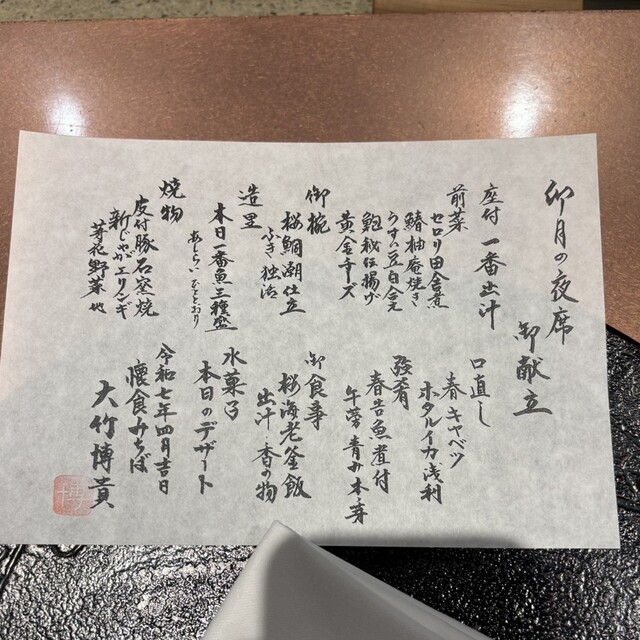 卯月の夜席
御献立
座付 一番出汁
前菜
セロリ田舎煮
鰆柚庵焼き
うすい豆白会え
鮑秘伝揚げ
黄金チーズ
御椀
桜鯛潮仕立
ふき 独活
造里
本日一番魚三種盛
あしらいひととおり
焼物
皮付豚石窯焼
新じゃがエリンギ
芽花野菜 他
口直し
春キャベツ
ホタルイカ浅利
強肴
春告魚煮付
牛蒡 青み 木の芽
御食事
桜海老釜飯
出汁 香の物
水菓子
本日のデザート
令和七年四月吉日
懐食みちば
大竹博貴
博